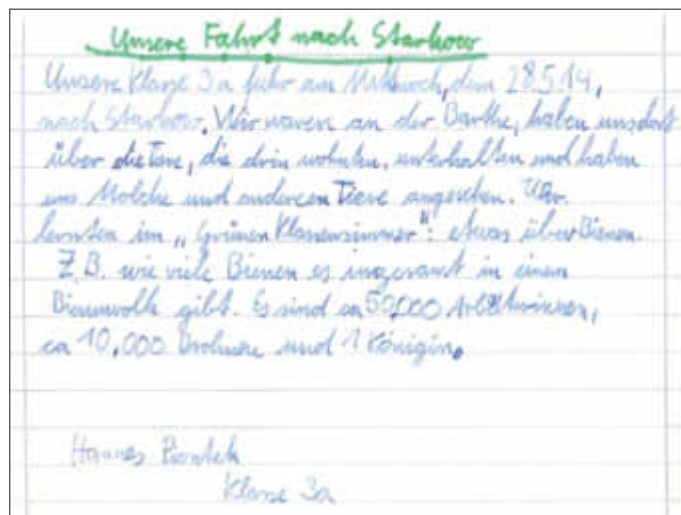 Unsere Fahrt nach Starkow
Unsere Klasse 3a fuhr am Mittwoch, dem 28.5.14,
nach Starkow. Wir waren an der Barthe, haben uns dort
über die Tiere, die drin wohnten, unterhalten und haben
uns Molche und anderen Tiere angesehen. Wir
lernten im „Grünen Klassenzimmer": etwas über Bienen.
Z.B. wie viele Bienen es insgesamt in einem
Bienenvolk gibt. Es sind ca 50,000 Arbeiterinnen,
ca 10,000 und 1 Königin.
Hannes
Klasse 3a